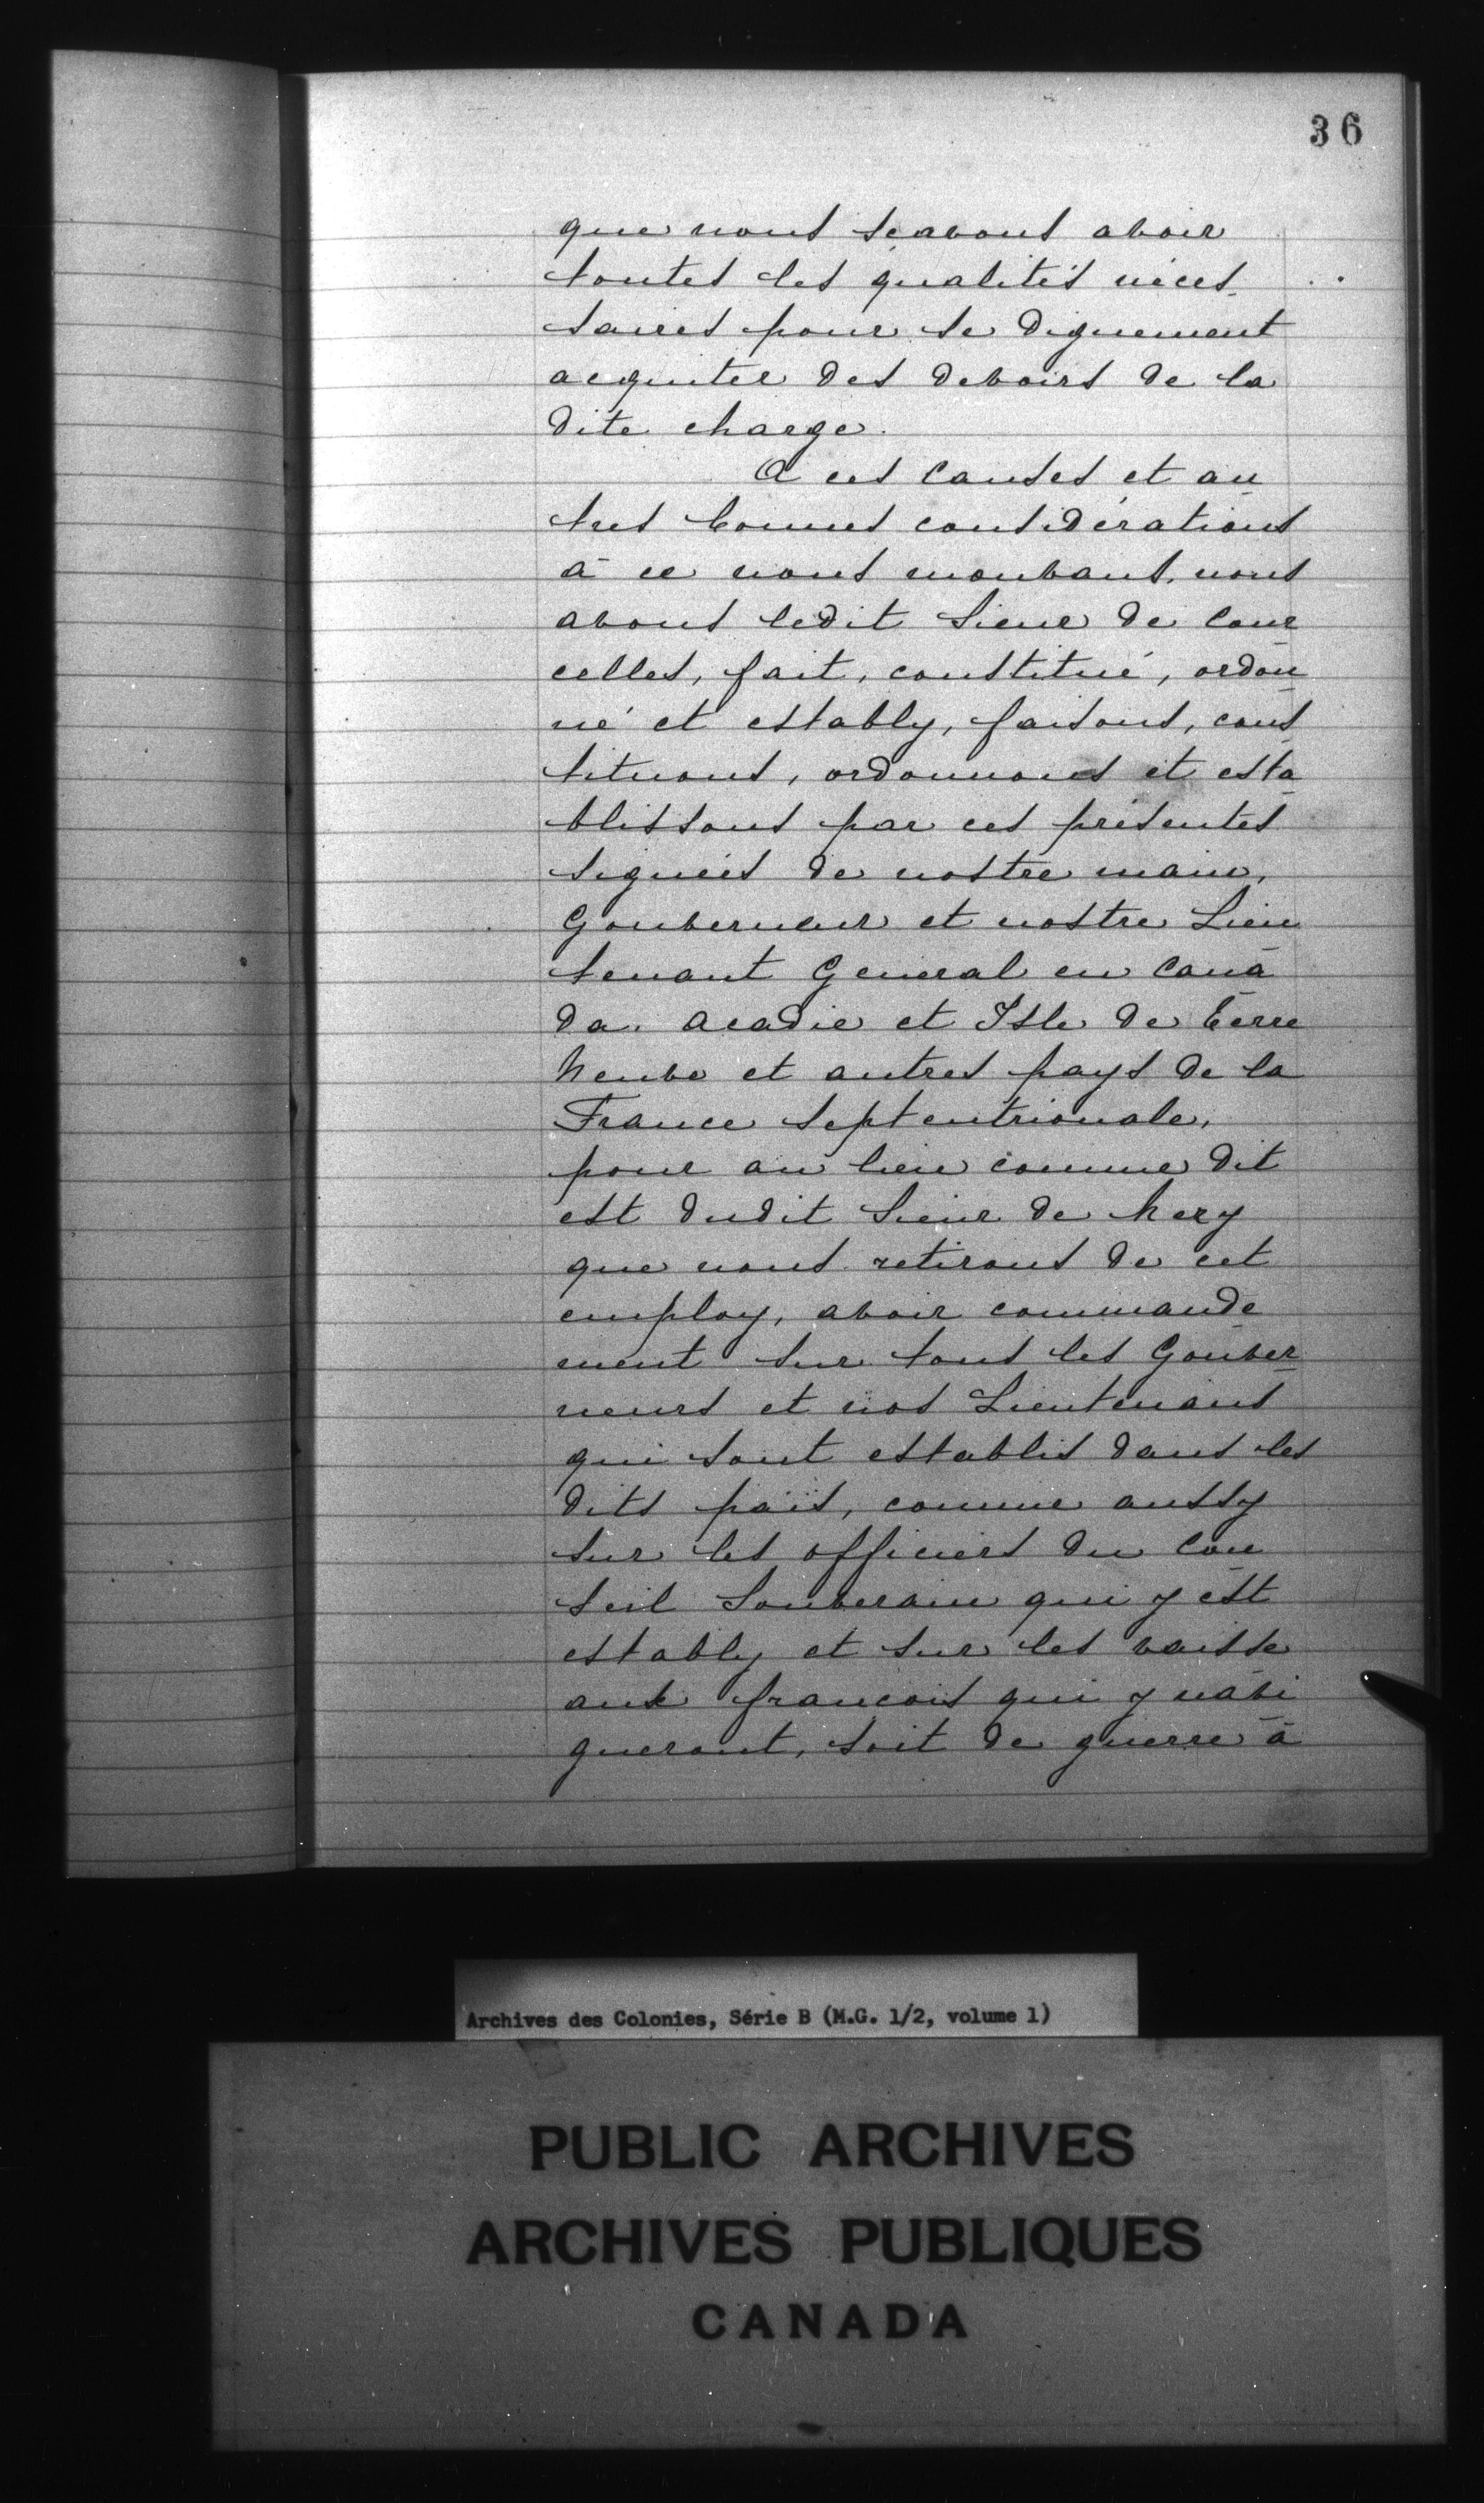 36
que nous sçavons avoir
toutes les qualités néces-
saires pour se dignement
acquiter des devoirs de la
dite charge.
A ces causes et au
tres bonnes considérations
à ce nous mouvans, nous
avons ledit Sieur de Cour
celles, fait, constitué, ordon
né et estably, faisons, cons
tituons, ordonnons et esta
blissons par ces présentes
signées de nostre main,
Gouverneur et nostre Lieu
tenant General en Cana
da, Acadie et Isle de Terre
Neuve et autres pays de la
France Septentrionale,
pour au lieu comme dit
est dudit Sieur de Mezy
que nous retirons de cet
employ, avoir commande
ment sur tous les Gouver
neurs et nos Lieutenans
qui sont establis dans les
dits païs, comme aussy
sur les officiers du Con
seil Souverain qui y est
estably et sur les vaisse
aux françois qui y navi
gueront, soit de guerre à
Archives des Colonies, Série B (M.G. 1/2, volume 1)
PUBLIC ARCHIVES
ARCHIVES PUBLIQUES
CANADA